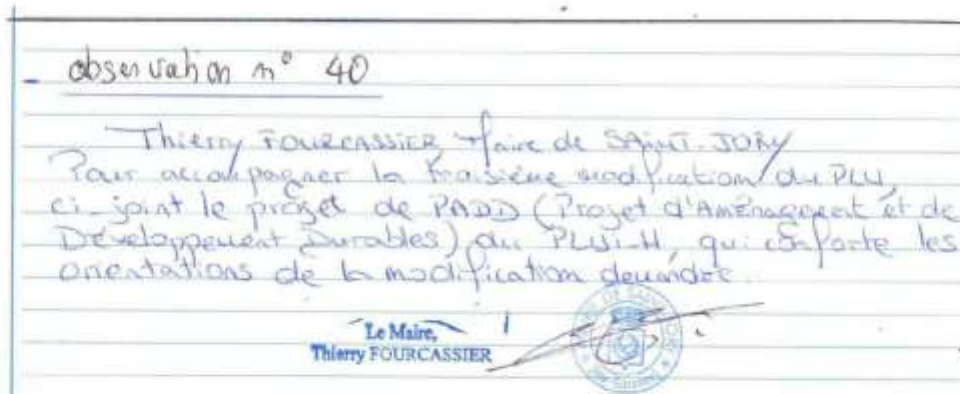 observation n° 40
Thierry FOURCASSIER Maire de SAINT-JORY
Pour accompagner la troisième modification du PLU,
ci-joint le projet de PADD (Projet d'Aménagement et de
Développement Durables) du PLUi-H, qui conforte les
orientations de la modification demandée.
Le Maire,
Thierry FOURCASSIER